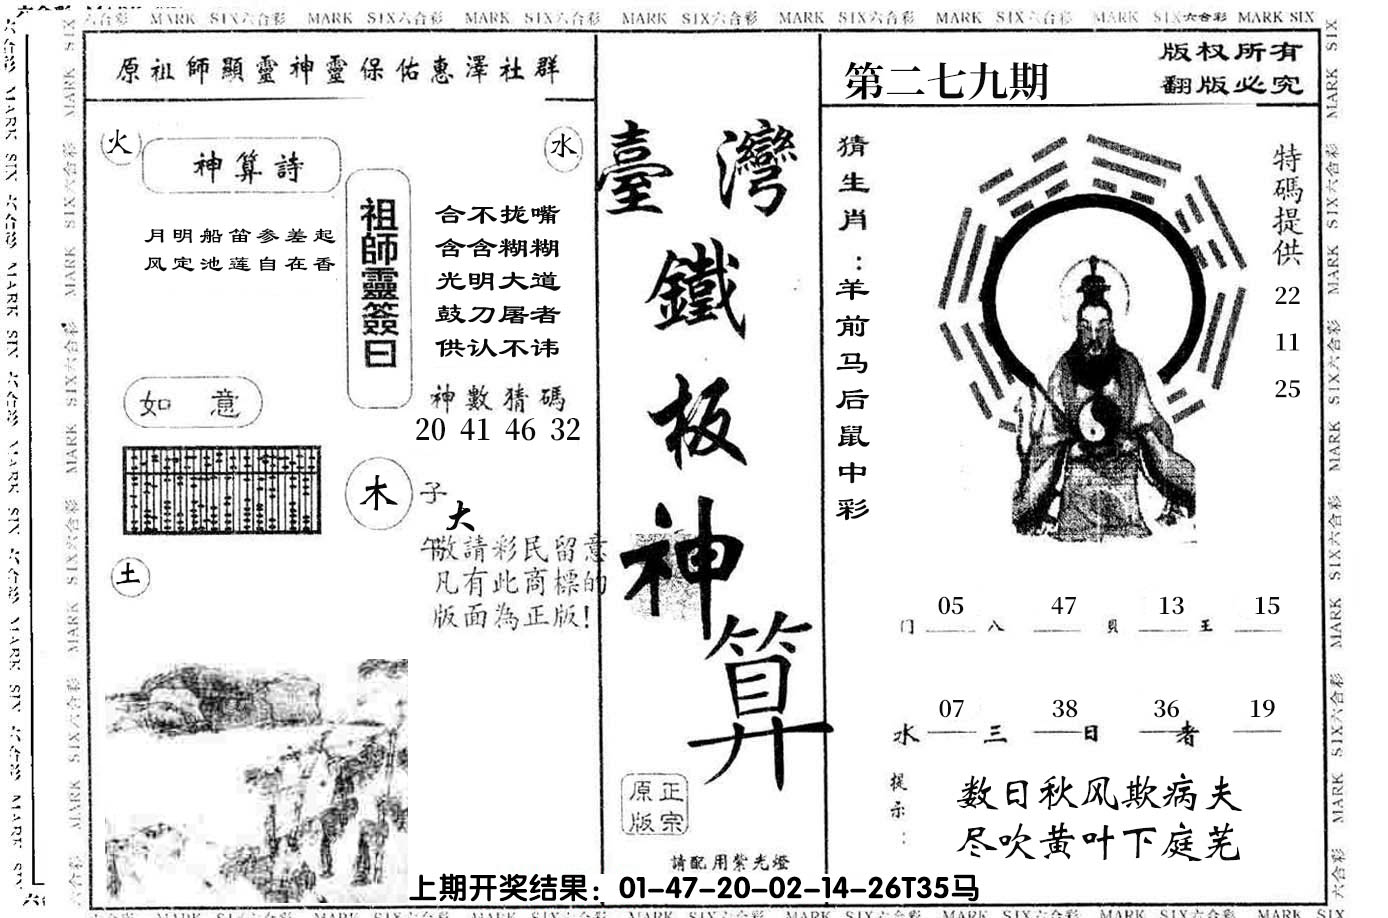 MARK SIX六合彩 MARK SIX六合彩 MARK SIX六合彩 MARK SIX六合彩 MARK SIX六合彩 MARK SIX六合彩 MARK SIX六合彩 MARK SIX
原祖師顯靈神靈保佑惠澤社群
火
水
神算詩
月明船笛参差起
风定池莲自在香
祖師靈簽曰
合不拢嘴
含含糊糊
光明大道
鼓刀屠者
供认不讳
神數猜碼
20 41 46 32
如意
木
子
大
午敬請彩民留意
凡有此商標的
版面為正版!
土
臺灣
鐵
板
神
算
正宗
原版
請配用紫光燈
第二七九期
版权所有
翻版必究
猜生肖:羊前马后鼠中彩
特碼提供
22
11
25
05 47 13 15
门 八 貝 王
07 38 36 19
水 三 日 者
提示:
数日秋风欺病夫
尽吹黄叶下庭芜
上期开奖结果：01-47-20-02-14-26T35马